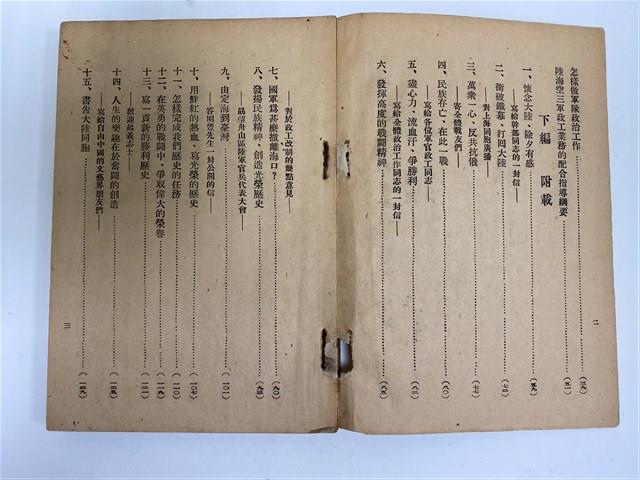 怎樣做軍隊政治工作……(三九)
陸海空三軍政工業務的配合指導綱要……(五一)
下編 附載
一、懷念大陸、除夕有感……(五九)
——寫給幹部同志的一封信——
二、衝破鐵幕、打回大陸……(七三)
——對上海同胞廣播——
三、萬衆一心、反共抗俄……(七七)
——寄全體戰友們——
四、民族存亡、在此一戰……(八〇)
——寫給各位軍官政工同志——
五、盡心力、流血汗、爭勝利……(八二)
——寫給全體政治工作同志的一封信——
六、發揮高度的戰鬪精神……(八五)
二
——對於政工改制的幾點意見——
七、國軍爲甚麼撤離海口?……(九〇)
八、發揚民族精神、創造光榮歷史……(九三)
——舟山區陸海軍官兵代表大會——
九、由定海到臺灣……(一〇一)
——答明豐先生一封公開的信——
十、用鮮紅的熱血、寫光榮的歷史……(一〇七)
十一、怎樣完成我們歷史的任務……(一一〇)
十二、在英勇的戰鬪中、爭取偉大的榮譽……(一一九)
十三、寫一頁新的勝利歷史……(一二一)
——歡迎起義志士——
十四、人生的樂趣在於奮鬪的創造……(一二五)
——寫給自由中國的文藝界朋友們——
十五、書告大陸同胞……(一二九)
三